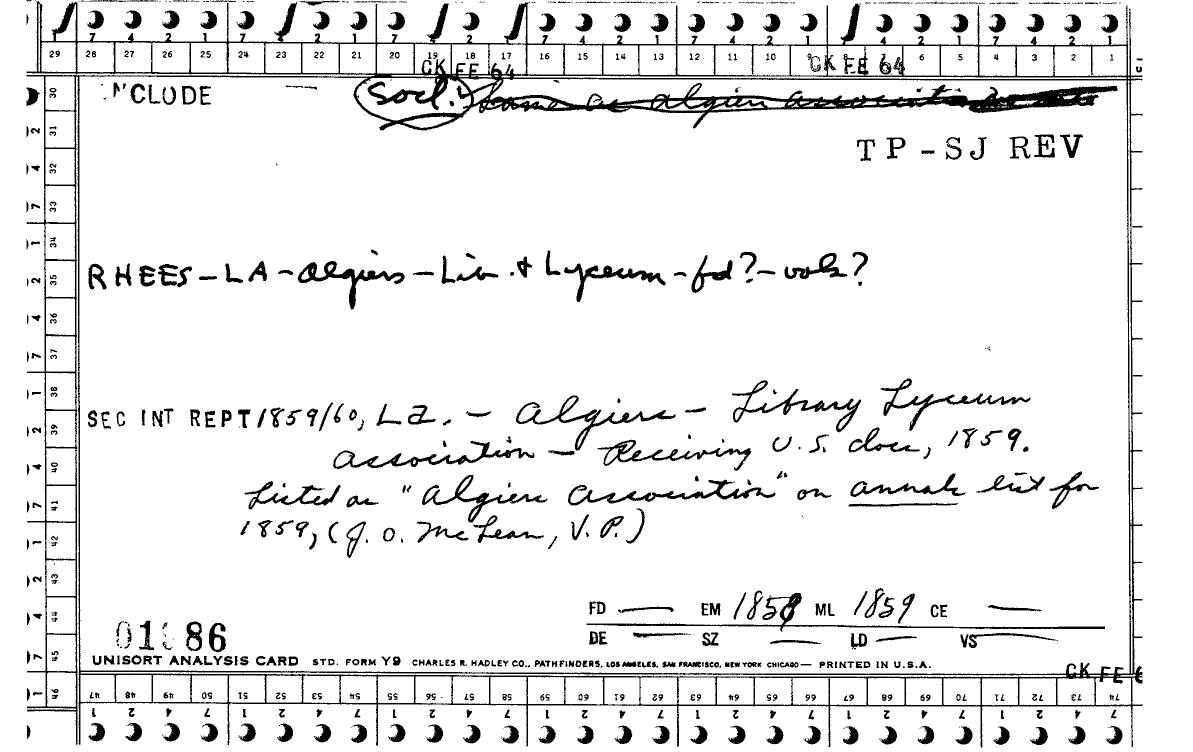 7 4 2 1 7 4 2 1 7 4 2 1 7 4 2 1 7 4 2 1 7 4 2 1 7 4 2 1
29 28 27 26 25 24 23 22 21 20 19 18 17 16 15 14 13 12 11 10 9 8 7 6 5 4 3 2 1
CK FE 64 CK FE 64
NCLUDE Socl. Same as Algiers Association
TP-SJ REV
RHEES-LA-Algiers-Lib. & Lyceum-fd?-vols?
SEC INT REPT 1859/60, La. - Algiers - Library Lyceum
Association - Receiving U.S. docs, 1859.
Listed as "Algiers Association" on annals list for
1859, (J. O. McLean, V.P.)
FD — EM 1858 ML 1859 CE —
DE — SZ — LD — VS —
86
UNISORT ANALYSIS CARD STD. FORM Y9 CHARLES R. HADLEY CO., PATHFINDERS, LOS ANGELES, SAN FRANCISCO, NEW YORK CHICAGO— PRINTED IN U.S.A.
CK FE 6
30 31 32 33 34 35 36 37 38 39 40 41 42 43 44 45 46
47 48 49 50 51 52 53 54 55 56 57 58 59 60 61 62 63 64 65 66 67 68 69 70 71 72 73 74
1 2 4 7 1 2 4 7 1 2 4 7 1 2 4 7 1 2 4 7 1 2 4 7 1 2 4 7